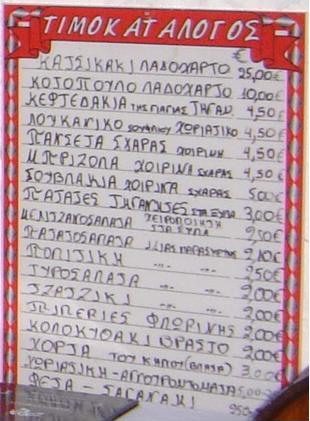 ΤΙΜΟΚΑΤΑΛΟΓΟΣ
€
ΚΑΤΣΙΚΑΚΙ ΛΑΔΟΧΑΡΤΟ 25,00€
ΚΟΤΟΠΟΥΛΟ ΛΑΔΟΧΑΡΤΟ 10,00€
ΚΕΦΤΕΔΑΚΙΑ ΤΗΣ ΓΙΑΓΙΑΣ ΤΗΓΑΝ. 4,50€
ΛΟΥΚΑΝΙΚΟ ΧΩΡΙΑΤΙΚΟ 4,50€
ΠΑΝΣΕΤΑ ΣΧΑΡΑΣ ΧΟΙΡΙΝΗ 4,50€
ΜΠΡΙΖΟΛΑ ΧΟΙΡΙΝΗ ΣΧΑΡΑΣ 4,50€
ΣΟΥΒΛΑΚΙΑ ΧΟΙΡΙΝΑ ΣΧΑΡΑΣ 5,00€
ΠΑΤΑΤΕΣ ΤΗΓΑΝΙΤΕΣ ΣΤΑ ΞΥΛΑ 3,00€
ΜΕΛΙΤΖΑΝΟΣΑΛΑΤΑ ΧΕΙΡΟΠΟΙΗΤΗ ΣΤΑ ΞΥΛΑ 2,50€
ΠΑΤΑΤΟΣΑΛΑΤΑ
ΠΟΛΙΤΙΚΗ -"- -"- 2,50€
ΤΥΡΟΣΑΛΑΤΑ -"- -"- 2,00€
ΤΖΑΤΖΙΚΙ -"- -"- 2,00€
ΠΙΠΕΡΙΕΣ ΦΛΩΡΙΝΗΣ 2,00€
ΚΟΛΟΚΥΘΑΚΙ ΒΡΑΣΤΟ 2,00€
ΧΟΡΤΑ ΤΟΥ ΚΗΠΟΥ (ΒΛΗΤΑ) 3,00€
ΧΩΡΙΑΤΙΚΗ-ΑΓΓΟΥΡΟΝΤΟΜΑΤΑ
ΦΕΤΑ - ΣΑΓΑΝΑΚΙ